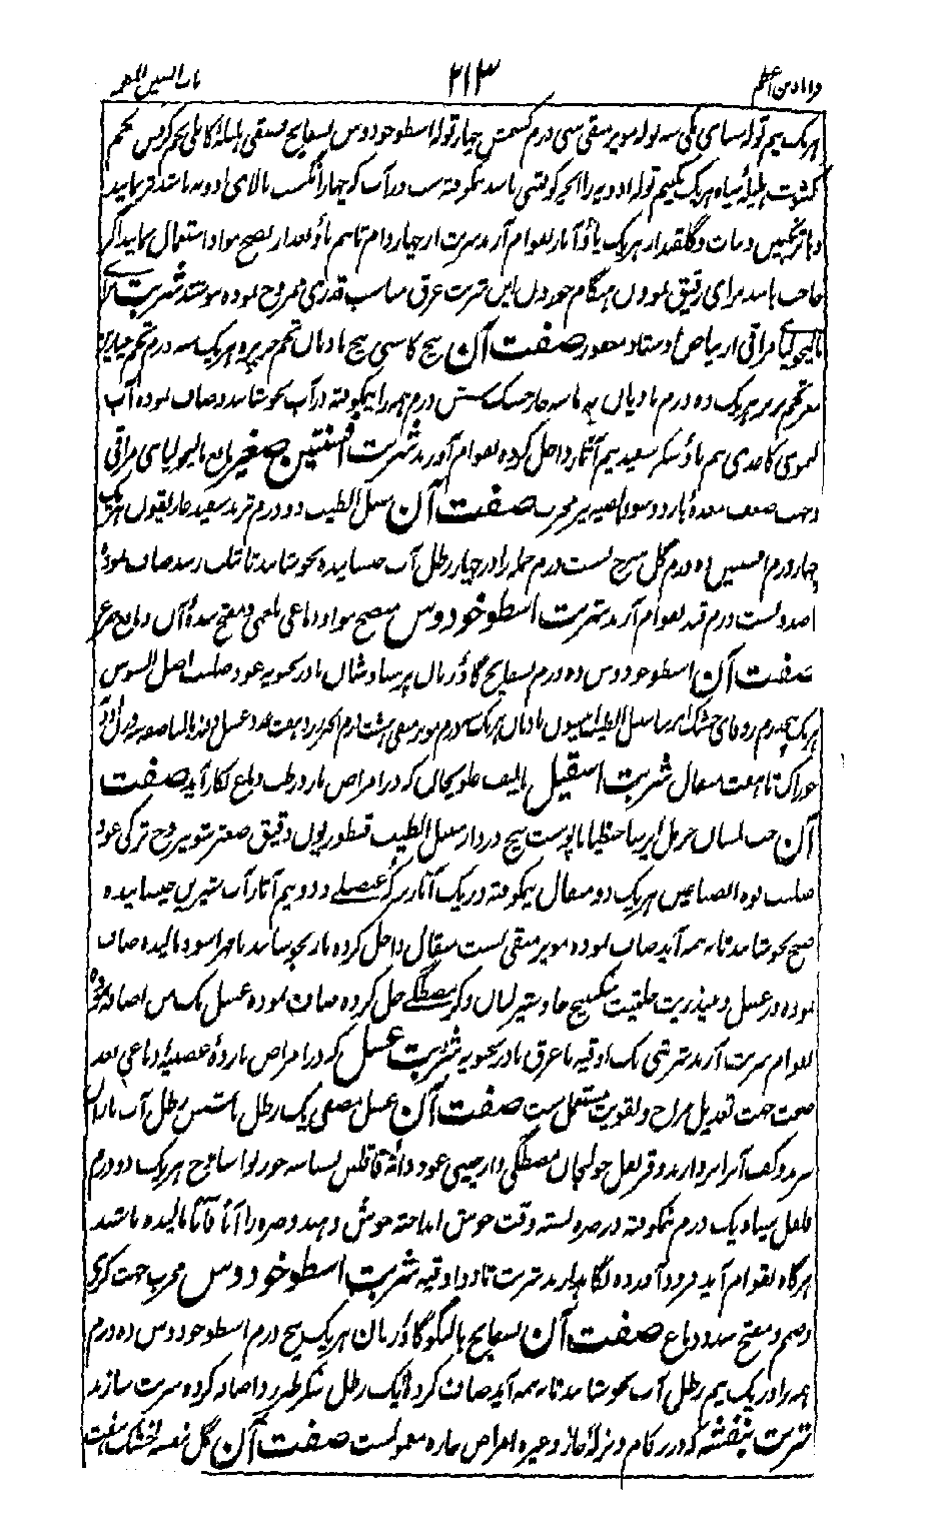 قرابادین اعظم ۲۱۳ باب السین المعجمه
هریک نیم تولہ سنای مکی سه تولہ مویز منقی سی درم کشمش چهار تولہ اسطوخودوس بسفایج فستقی هلیلہ کابلی تخم کرفس تخم
کشوث هلیلۂ سیاه هریک یکنیم تولہ ادویہ را آنچہ کوفتنی باشد نیمکوفتہ شب در آب کہ چهار انگشت بالای ادویہ باشد تر نمایند
و با ترنجبین و نبات و گلقند از هریک پاؤ آثار بقوام آرند شربت از چهار دام تا نیم پاؤ بعد از نضج مواد استعمال نمایند اگر
حاجت باشد برای رقیق نمودن هنگام خوردن این شربت عرق مناسب قدری ممزوج نموده نوشند شربت برای
مالیخولیا مراقی از بیاض اوستاد مغفور صفت آن بیخ کاسنی بیخ بادیان تخم خرپزه هریک سه درم تخم خیارین
مغز تخم هریک ده درم بادیان ماشه خارخسک شش درم همہ را نیمکوفتہ در آب بجوشانند و صاف نموده آب
لیموی کاغذی نیم پاؤ شکر سفید نیم آثار داخل کرده بقوام آورند شربت افسنتین صغیر نافع مالیخولیای مراقی
و جهت ضعف معدۂ بارد و سودا مجرب صفت آن سنبل الطیب دو درم تربد سفید غاریقون هریک
چهار درم افسنتین ده درم گل سرخ بست درم جملہ را در چهار رطل آب خیسانیده بجوشانند تا ثلث رسد صاف نموده
صد و بست درم قند بقوام آرند شربت اسطوخودوس منضج مواد دماغی بلغمی و مفتح سدۂ آن و نافع صرع
صفت آن اسطوخودوس ده درم بسفایج گاؤزبان پرسیاوشان بادرنجبویہ عود صلیب اصل السوس
هریک پنجدرم زوفای خشک ایرسا سنبل الطیب انیسون بادیان هریک سہ درم مویز منقی هشت درم انجیر زرد هفت عدد عسل و قند بالمناصفہ
خوراک تا هفت مثقال شربت اسقیل تالیف علویخان کہ در امراض بارد رطب دماغ بکار آید صفت
آن حب بلسان حرمل ایرسا جنطیانا پوست بیخ سنبل الطیب قنطوریون دقیق صعتر شونیز وج ترکی عود
صلیب فوه الصباغین هریک دو مثقال نیمکوفتہ در یک آثار سرکہ عنصلے و دو نیم آثار آب شیرین خیسانیده
صبح بجوشانند تا بہ نیمہ آید صاف نموده مویز منقی بست مثقال داخل کرده باز بجوشانند تا مهرا شود مالیده صاف
نموده در عسل حلتیت سکبینج جاوشیر لبان ذکر مصطگے حل کرده صاف نموده عسل یک من اضافہ کرده
بقوام شربت آرند شربتی یک اوقیہ با عرق بادرنجبویہ شربت عسل کہ در امراض بارده عصبیۂ دماغی بعد
صحت جهت تعدیل مزاج و تقویت مستعمل ست صفت آن عسل مصفی یک رطل شش رطل آب باران
بپزند و کف آنرا بردارند و قرنفل خولنجان مصطگی دارچینی عود دانۂ قاقلہ بسباسہ جوزبوا ساذج هریک دو درم
فلفل سیاه یک درم نیمکوفتہ در صره بستہ وقت جوش انداختہ جوش دهند و صره را آناً فآناً مالیده باشند
هرگاه بقوام آید فرود آورده نگاهدارند شربت تا دو اوقیہ شربت اسطوخودوس مجرب جهت کری
و صمم و مفتح سدد دماغ صفت آن بسفایج بالنگو گاؤزبان هریک پنج درم اسطوخودوس ده درم
همہ را در یک نیم رطل آب بجوشانند تا بہ نیمہ آید صاف کرده با یک رطل شکر طبرزد اضافہ کرده شربت سازند
شربت بنفشہ کہ در زکام و نزلۂ حار و غیره امراض حاره معمولست صفت آن گل بنفشہ خشک هفت